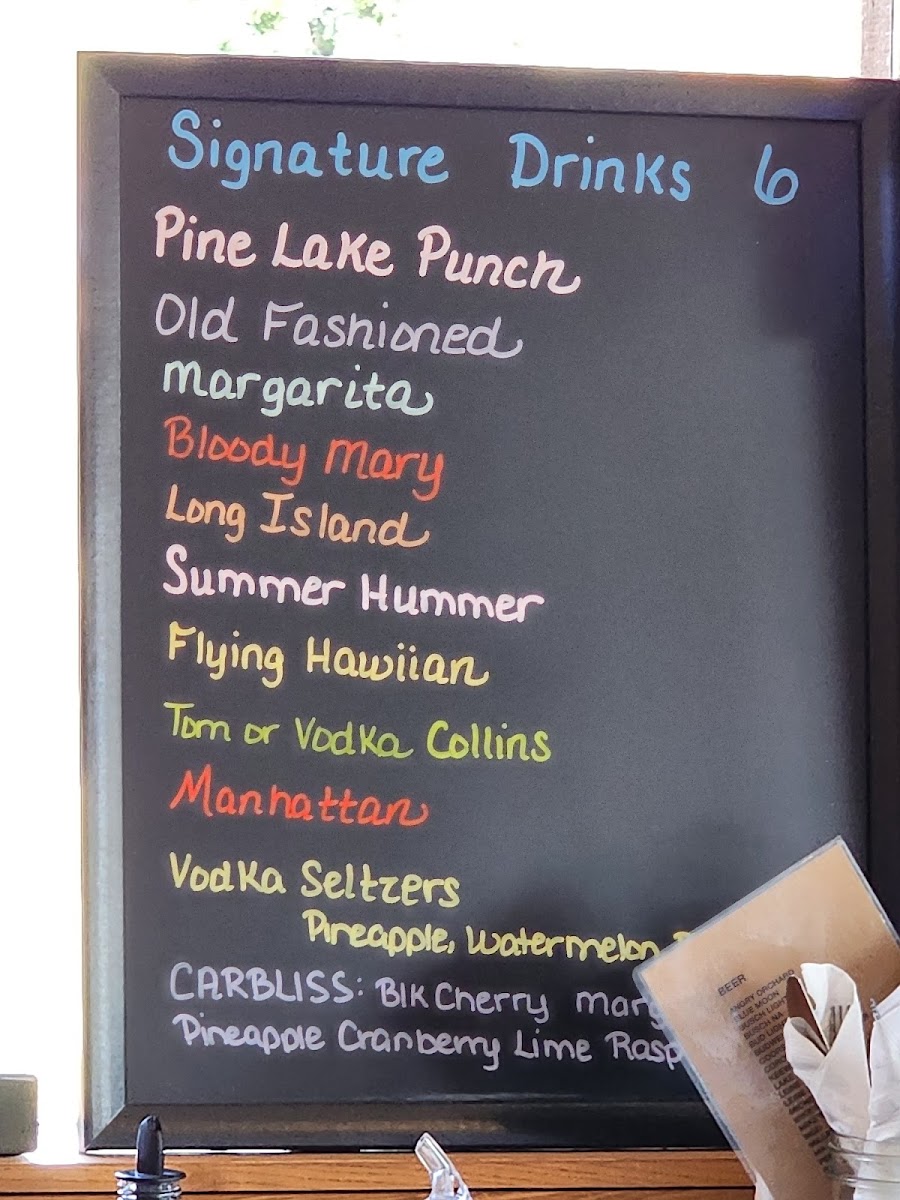 Signature Drinks 6
Pine Lake Punch
Old Fashioned
Margarita
Bloody Mary
Long Island
Summer Hummer
Flying Hawiian
Tom or Vodka Collins
Manhattan
Vodka Seltzers
Pineapple, Watermelon
CARBLISS: Blk Cherry
Pineapple Cranberry Lime
BEER
ANGRY ORCHARD
BLUE MOON
BUSCH LIGHT
BUSCH NA